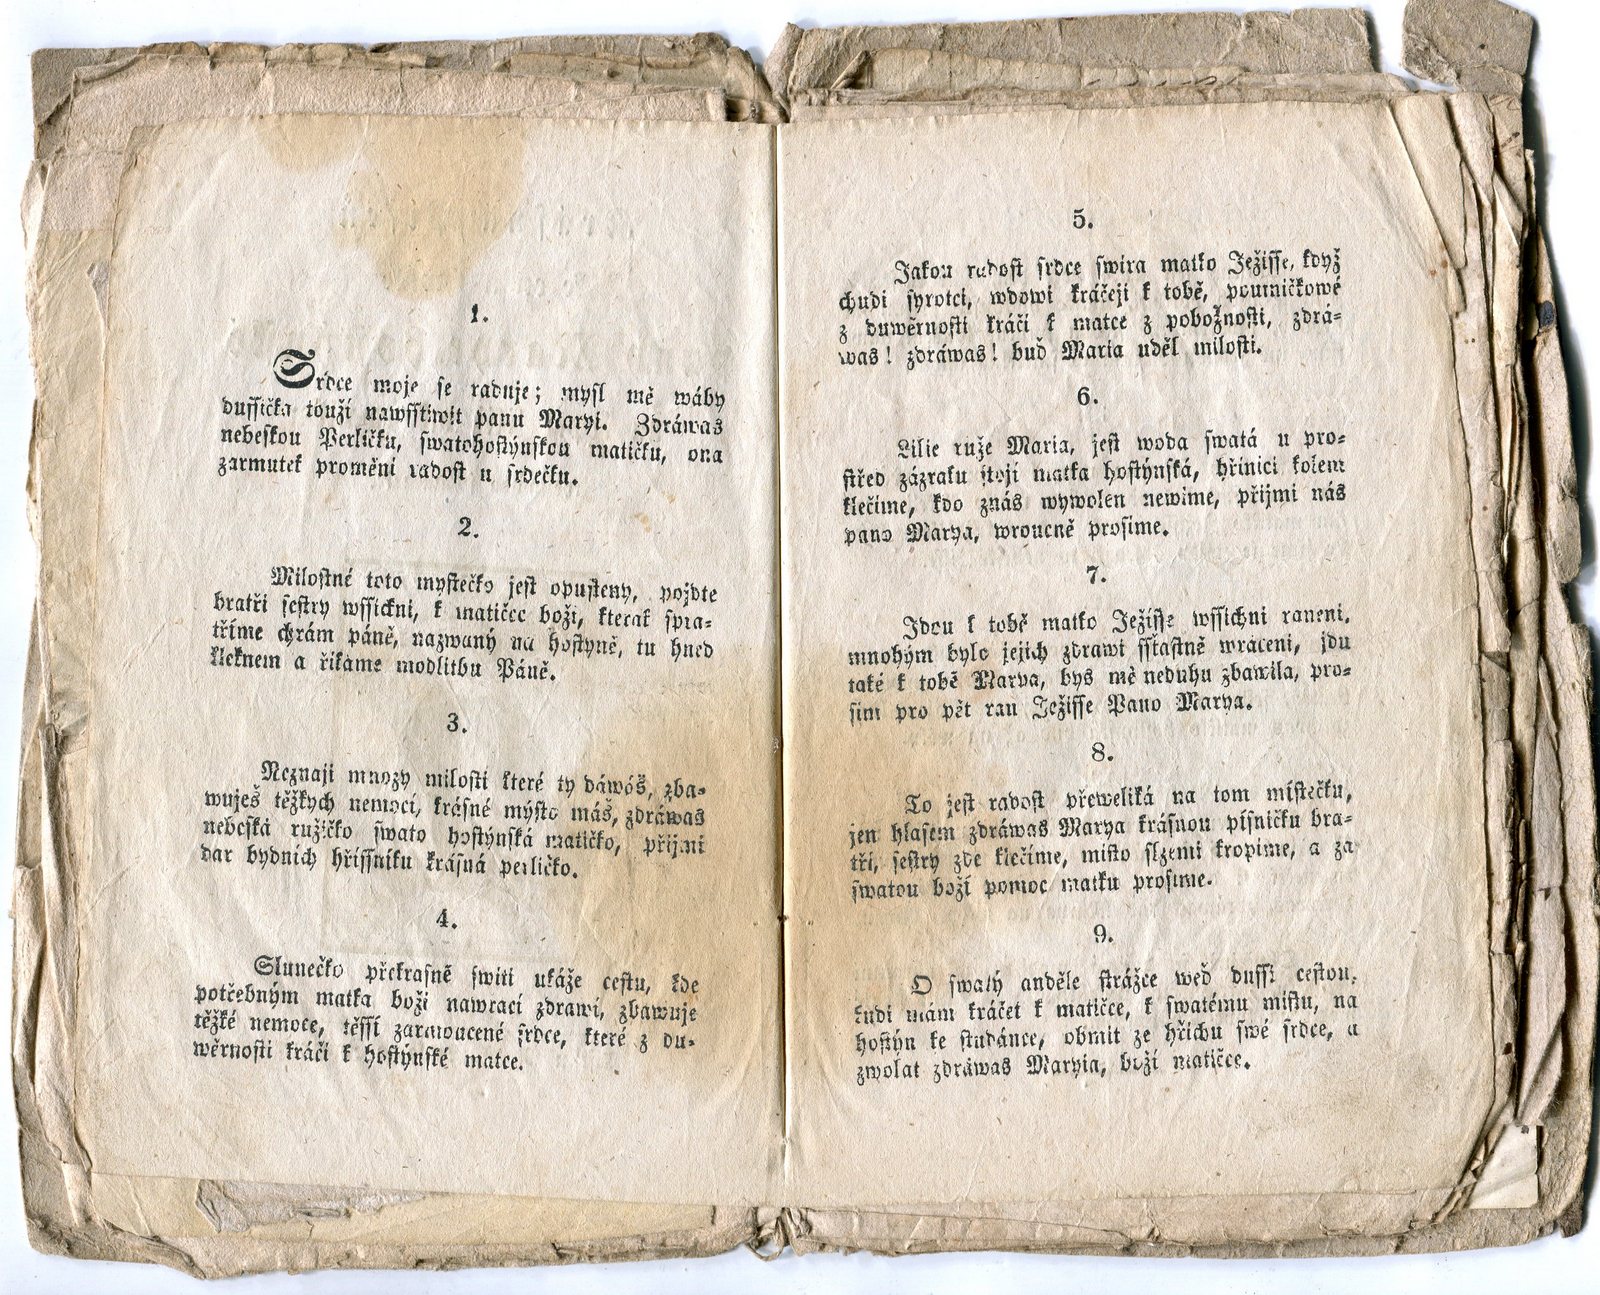 1.
Srdce moje se raduje; mysl mě wáby
dussička touží nawsstiwit panu Maryi. Zdráwas
nebeskou Perličku, swatohostýnskou matičku, ona
zarmutek promění radost u srdečku.
2.
Milostné toto mystečko jest opusteny, pojdte
bratři sestry wssickni, k matičce boži, kterak spa-
tříme chrám páně, nazwaný na hostyně, tu hned
kleknem a řikáme modlitbu Páně.
3.
Neznaji mnozy milosti které ty dáwóš, zba-
wuješ těžkych nemoci, krásné mýsto máš, zdráwas
nebeská ružičko swato hostýnská matičko, přijmi
dar bydnich hříssniku krásná perličko.
4.
Slunečko překrasně switi ukáže cestu, kde
potčebným matka boži nawrací zdrawí, zbawuje
těžké nemoce, těssí zarmoucené srdce, které z du-
wěrnosti kráči k hostýnské matce.
5.
Jakou radost srdce swira matko Ježisse, když
chudi syrotci, wdowi kráčeji k tobě, poutničkowé
z duwěrnosti kráči k matce z pobožnosti, zdrá-
was! zdráwas! buď Maria uděl milosti.
6.
Lilie ruže Maria, jest woda swatá u pro-
střed zázraku stojí matka hostýnská, hřinici kolem
klečime, kdo znás wywolen newime, přijmi nás
pano Marya, wroucně prosime.
7.
Jdou k tobě matko Ježisse wssichni raneni,
mnohým bylo jejich zdrawi sstastně wráceni, jdu
také k tobě Marya, bys mě neduhu zbawila, pro-
sim pro pět ran Ježisse Pano Marya.
8.
To jest radost přeweliká na tom místečku,
jen hlasem zdráwas Marya krásnou písničku bra-
tři, sestry zde klečíme, misto slzemi kropime, a za
swatou boží pomoc matku prosime.
9.
O swatý anděle strážce weď dussi cestou,
kudi mám kráčet k matičce, k swatému mistu, na
hostýn ke studánce, obmit ze hřichu swé srdce, a
zwolat zdráwas Maryia, boží matičce.